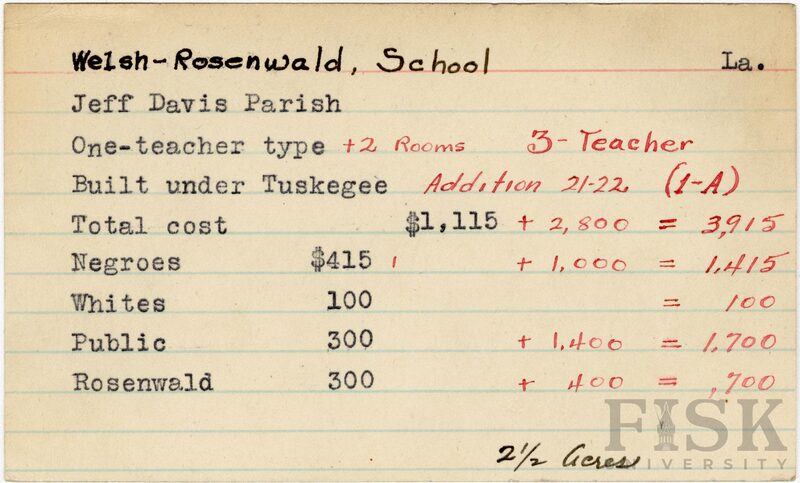 Welsh-Rosenwald, School La.
Jeff Davis Parish
One-teacher type +2 Rooms 3-Teacher
Built under Tuskegee Addition 21-22 (1-A)
Total cost $1,115 + 2,800 = 3,915
Negroes $415 1 + 1,000 = 1,415
Whites 100 = 100
Public 300 + 1,400 = 1,700
Rosenwald 300 + 400 = ,700
2½ Acres
FISK
UNIVERSITY